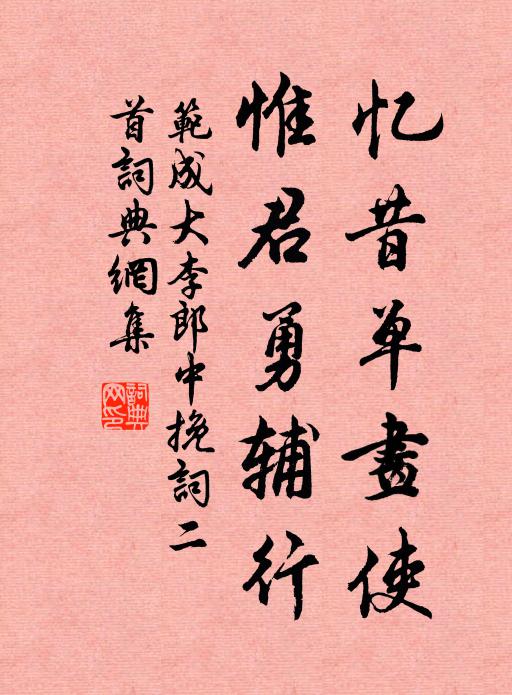 忆昔单畫使
惟君勇辅行
範成大李郎中挽詞二
首詞典網集
詞典
网印